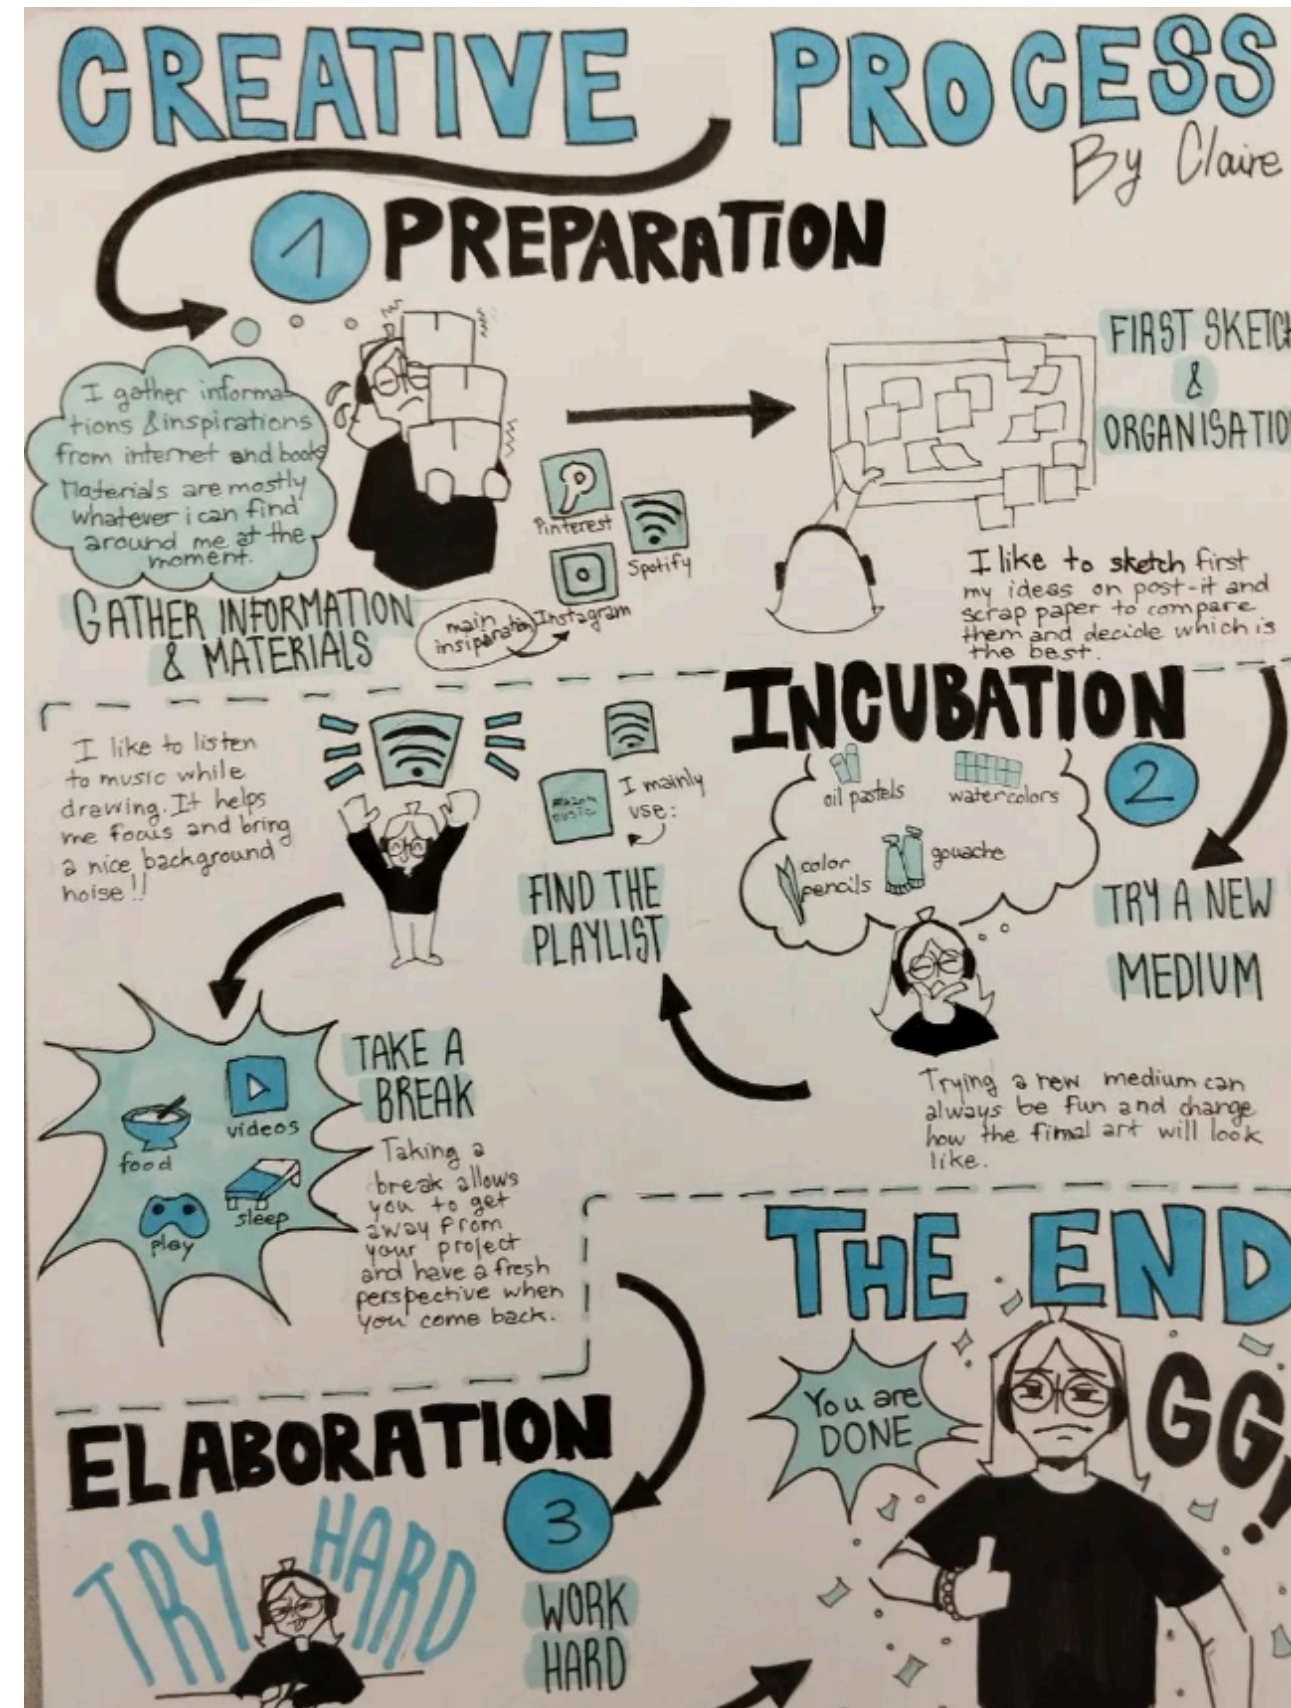 CREATIVE PROCESS
By Claire
1 PREPARATION
I gather informa-
tions & inspirations
from internet and books
Materials are mostly
whatever i can find
around me at the
moment.
GATHER INFORMATION
& MATERIALS
Pinterest
Spotify
Instagram
main
insiparation
FIRST SKETCH
&
ORGANISATIO
I like to sketch first
my ideas on post-it and
scrap paper to compare
them and decide which is
the best.
INCUBATION
2
oil pastels
watercolors
color
pencils
gouache
TRY A NEW
MEDIUM
Trying a new medium can
always be fun and change
how the fimal art will look
like.
I like to listen
to music while
drawing. It helps
me focus and bring
a nice background
noise!!
I mainly
use:
amazon
music
FIND THE
PLAYLIST
TAKE A
BREAK
videos
food
sleep
play
Taking a
break allows
you to get
away from
your project
and have a fresh
perspective when
you come back.
ELABORATION
3
TRY HARD
WORK
HARD
THE END
You are
DONE
GG!